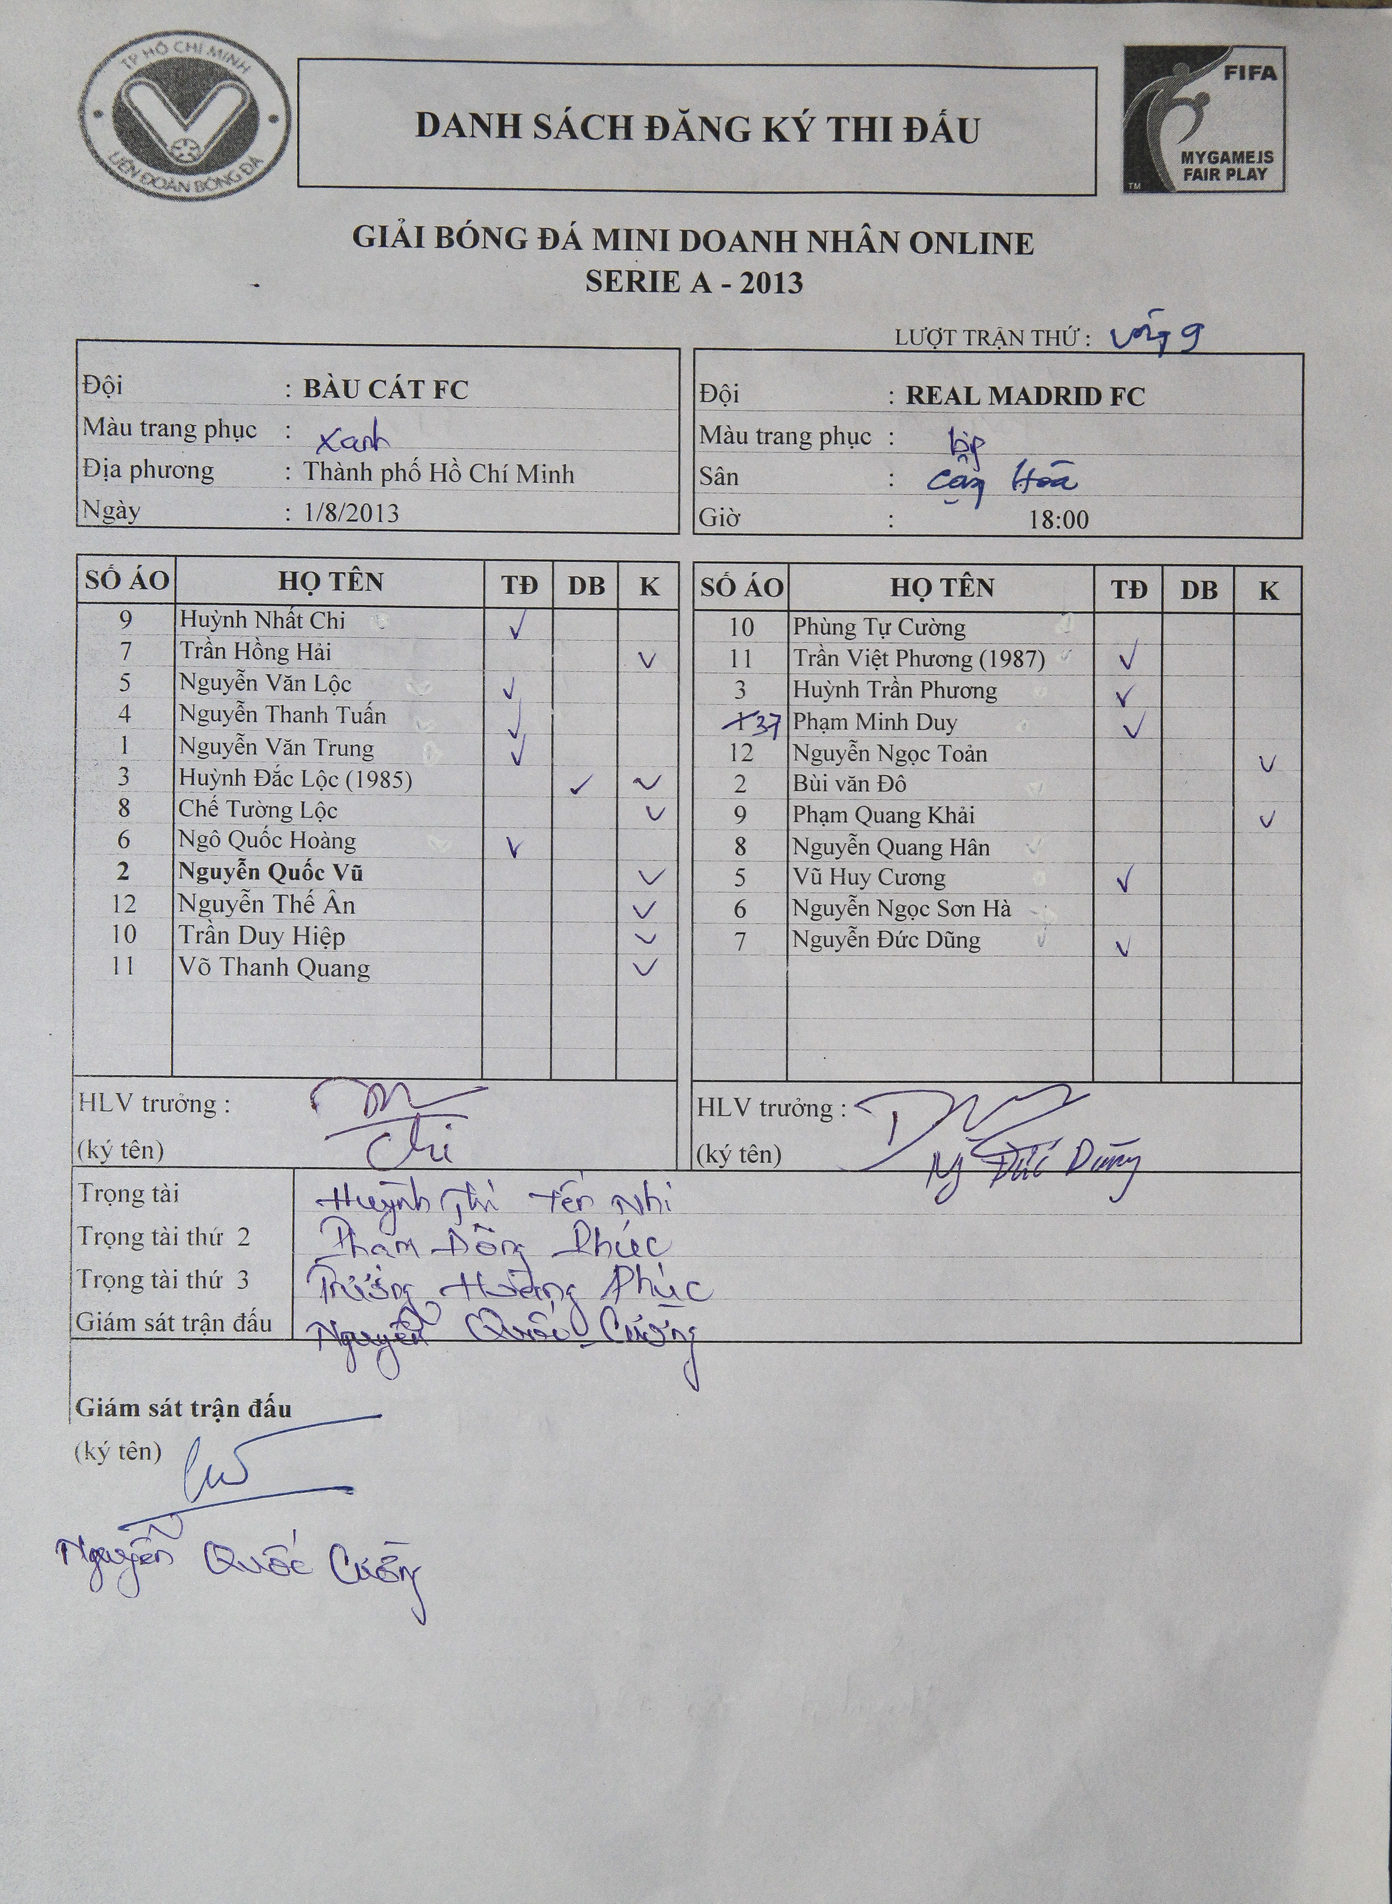 TP HỒ CHÍ MINH
LIÊN ĐOÀN BÓNG ĐÁ
DANH SÁCH ĐĂNG KÝ THI ĐẤU
FIFA
MY GAME IS
FAIR PLAY
TM
GIẢI BÓNG ĐÁ MINI DOANH NHÂN ONLINE
SERIE A - 2013
LƯỢT TRẬN THỨ : vòng 9
Đội : BÀU CÁT FC
Màu trang phục : Xanh
Địa phương : Thành phố Hồ Chí Minh
Ngày : 1/8/2013
Đội : REAL MADRID FC
Màu trang phục :
Sân : Cộng Hòa
Giờ : 18:00
SỐ ÁO HỌ TÊN TĐ DB K
9 Huỳnh Nhất Chi ✓
7 Trần Hồng Hải ✓
5 Nguyễn Văn Lộc ✓
4 Nguyễn Thanh Tuấn ✓
1 Nguyễn Văn Trung ✓
3 Huỳnh Đắc Lộc (1985) ✓ ✓
8 Chế Tường Lộc ✓
6 Ngô Quốc Hoàng ✓
2 Nguyễn Quốc Vũ ✓
12 Nguyễn Thế Ân ✓
10 Trần Duy Hiệp ✓
11 Võ Thanh Quang ✓
SỐ ÁO HỌ TÊN TĐ DB K
10 Phùng Tự Cường
11 Trần Việt Phương (1987) ✓
3 Huỳnh Trần Phương ✓
37 Phạm Minh Duy ✓
12 Nguyễn Ngọc Toản ✓
2 Bùi văn Đô
9 Phạm Quang Khải ✓
8 Nguyễn Quang Hân
5 Vũ Huy Cương ✓
6 Nguyễn Ngọc Sơn Hà
7 Nguyễn Đức Dũng ✓
HLV trưởng :
(ký tên) Chi
HLV trưởng :
(ký tên) Ng Đức Dũng
Trọng tài Huỳnh Thị Yến Nhi
Trọng tài thứ 2 Phạm Đồng Phúc
Trọng tài thứ 3 Trương Hoàng Phúc
Giám sát trận đấu Nguyễn Quốc Cường
Giám sát trận đấu
(ký tên)
Nguyễn Quốc Cường